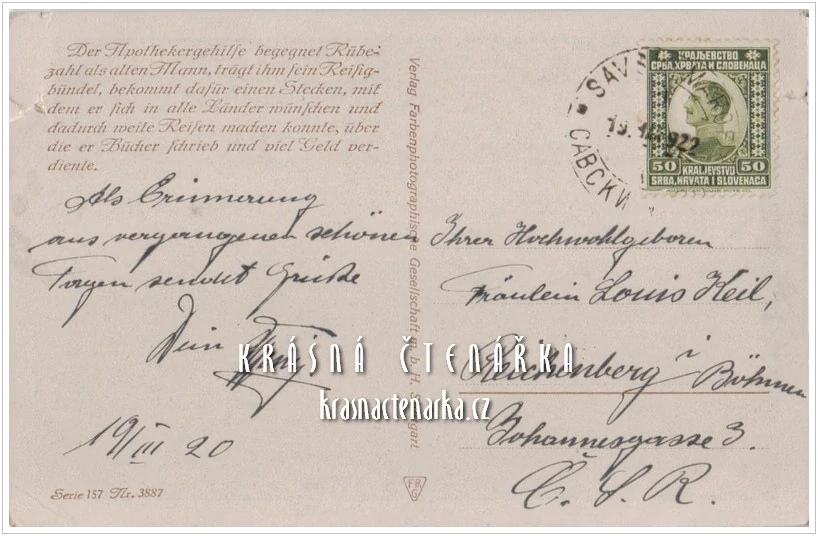 Der Apothekergehilfe begegnet Rübe-
zahl als alten Mann, trägt ihm sein Reisig-
bündel, bekommt dafür einen Stecken, mit
dem er sich in alle Länder wünschen und
dadurch weite Reisen machen konnte, über
die er Bücher schrieb und viel Geld ver-
diente.
Als Erinnerung
aus vergangenen schönen
Tagen sendet Grüße
Dein
19/III 20
Serie 157 Nr. 3887
Verlag Farbenphotographische Gesellschaft m. b. H. Stuttgart
FRG
КРАЉЕВСТВО
СРБА, ХРВАТА И СЛОВЕНАЦА
50 KRALJEVSTVO 50
SRBA, HRVATA I SLOVENACA
SAVSKI
19. 922
САВСКИ
Ihrer Hochwohlgeboren
Fräulein Louis Keil,
Reichenberg i
Böhmen
Johannesgasse 3.
Č. S. R.
KRÁSNÁ ČTENÁŘKA
krasnactenarka.cz